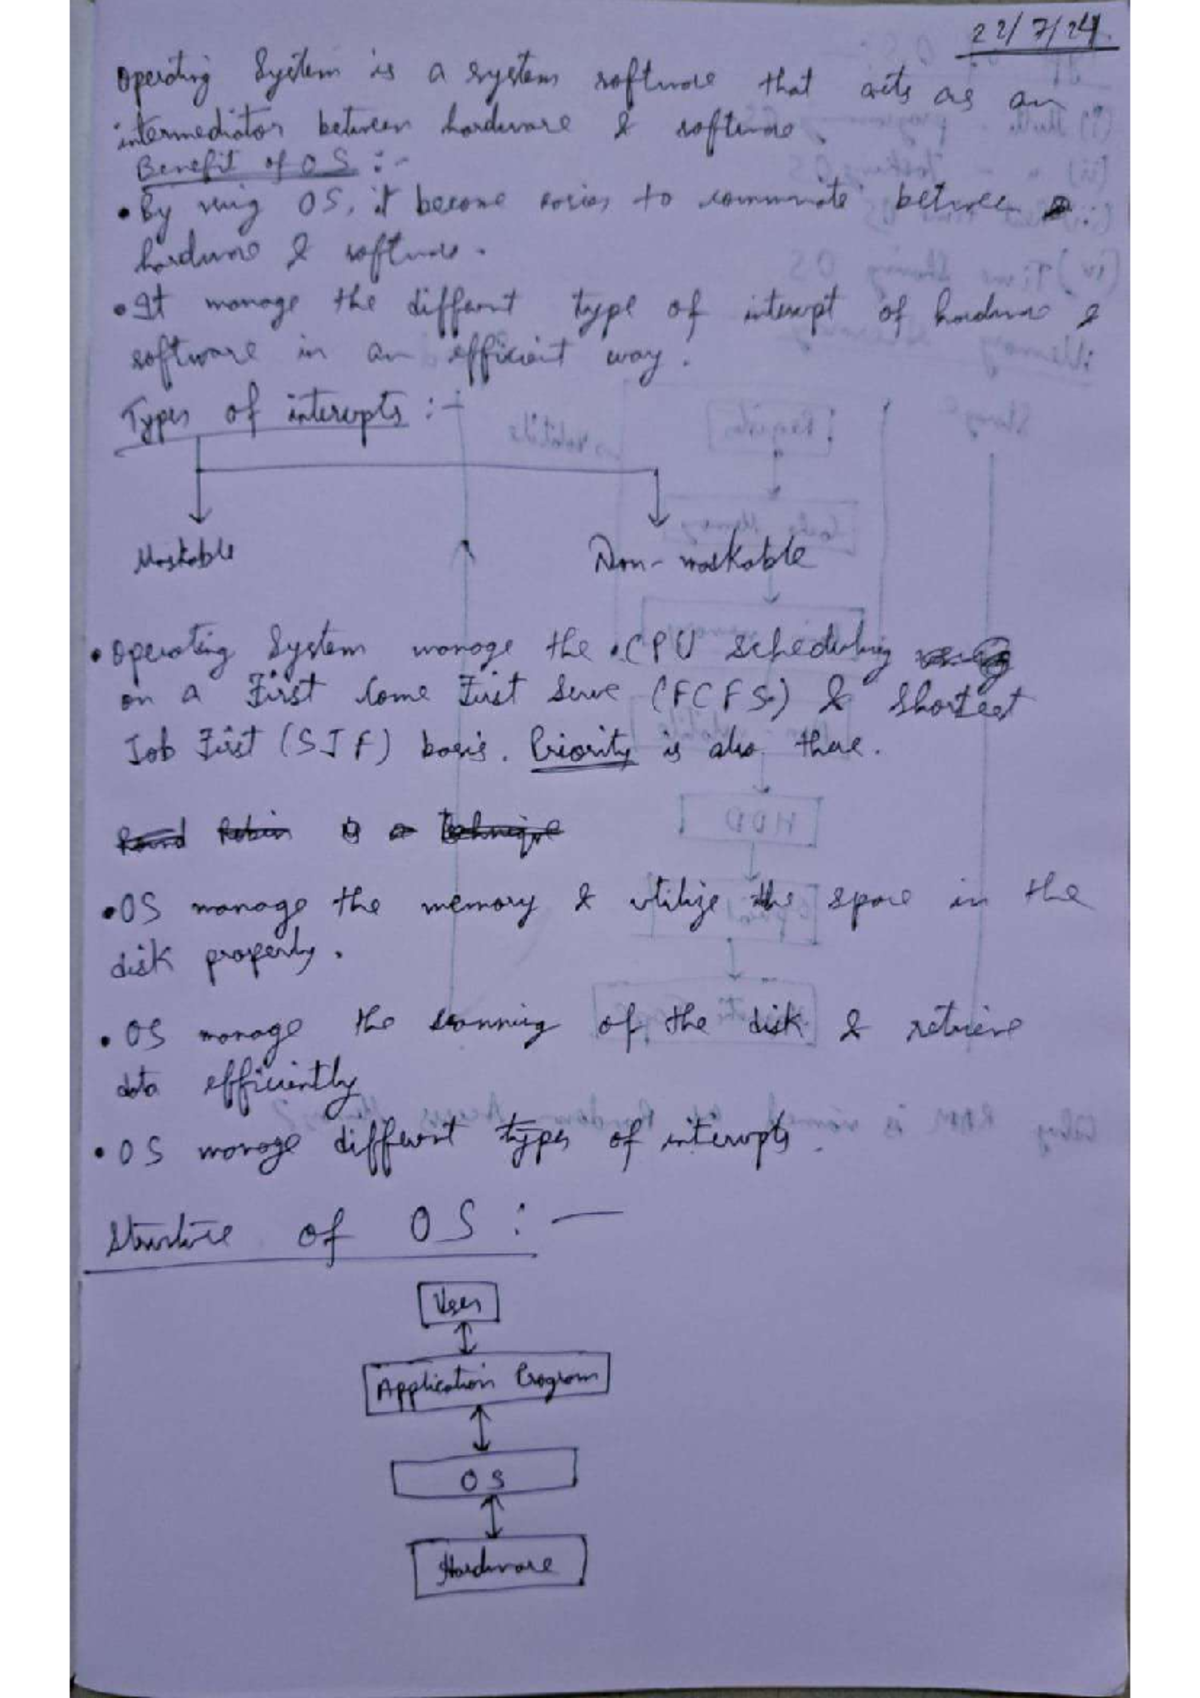 22/7/24.
Operating System is a system software that acts as an
intermediator between hardware & software.
Benefit of OS :-
• By using OS, it become easier to communate between
hardware & software.
• It manage the different type of interupt of hardware &
software in an efficient way.
Types of interupts :-
Maskable Non-maskable
• Operating System manage the CPU Scheduling
on a First Come First Serve (FCFS) & Shortest
Job First (SJF) basis. Priority is also there.
Round Robin is a Technique
• OS manage the memory & utilize the space in the
disk properly.
• OS manage the scanning of the disk & retrieve
data efficiently
• OS manage different types of interupts.
Structure of OS :-
User
Application Program
OS
Hardware